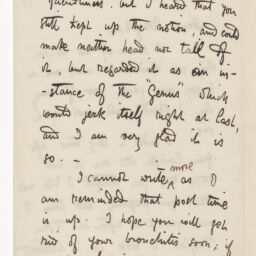 quaintness. but I heard that you
still kept up the notion, and could
make neither head nor tail of
it, but regarded it as an in-
stance of the "Genus" which
would jerk itself right at last,
and I am very glad it is
so. —
more
I cannot write ^ as I
am reminded that post time
is up. I hope you will get
rid of your bronchitis soon; if